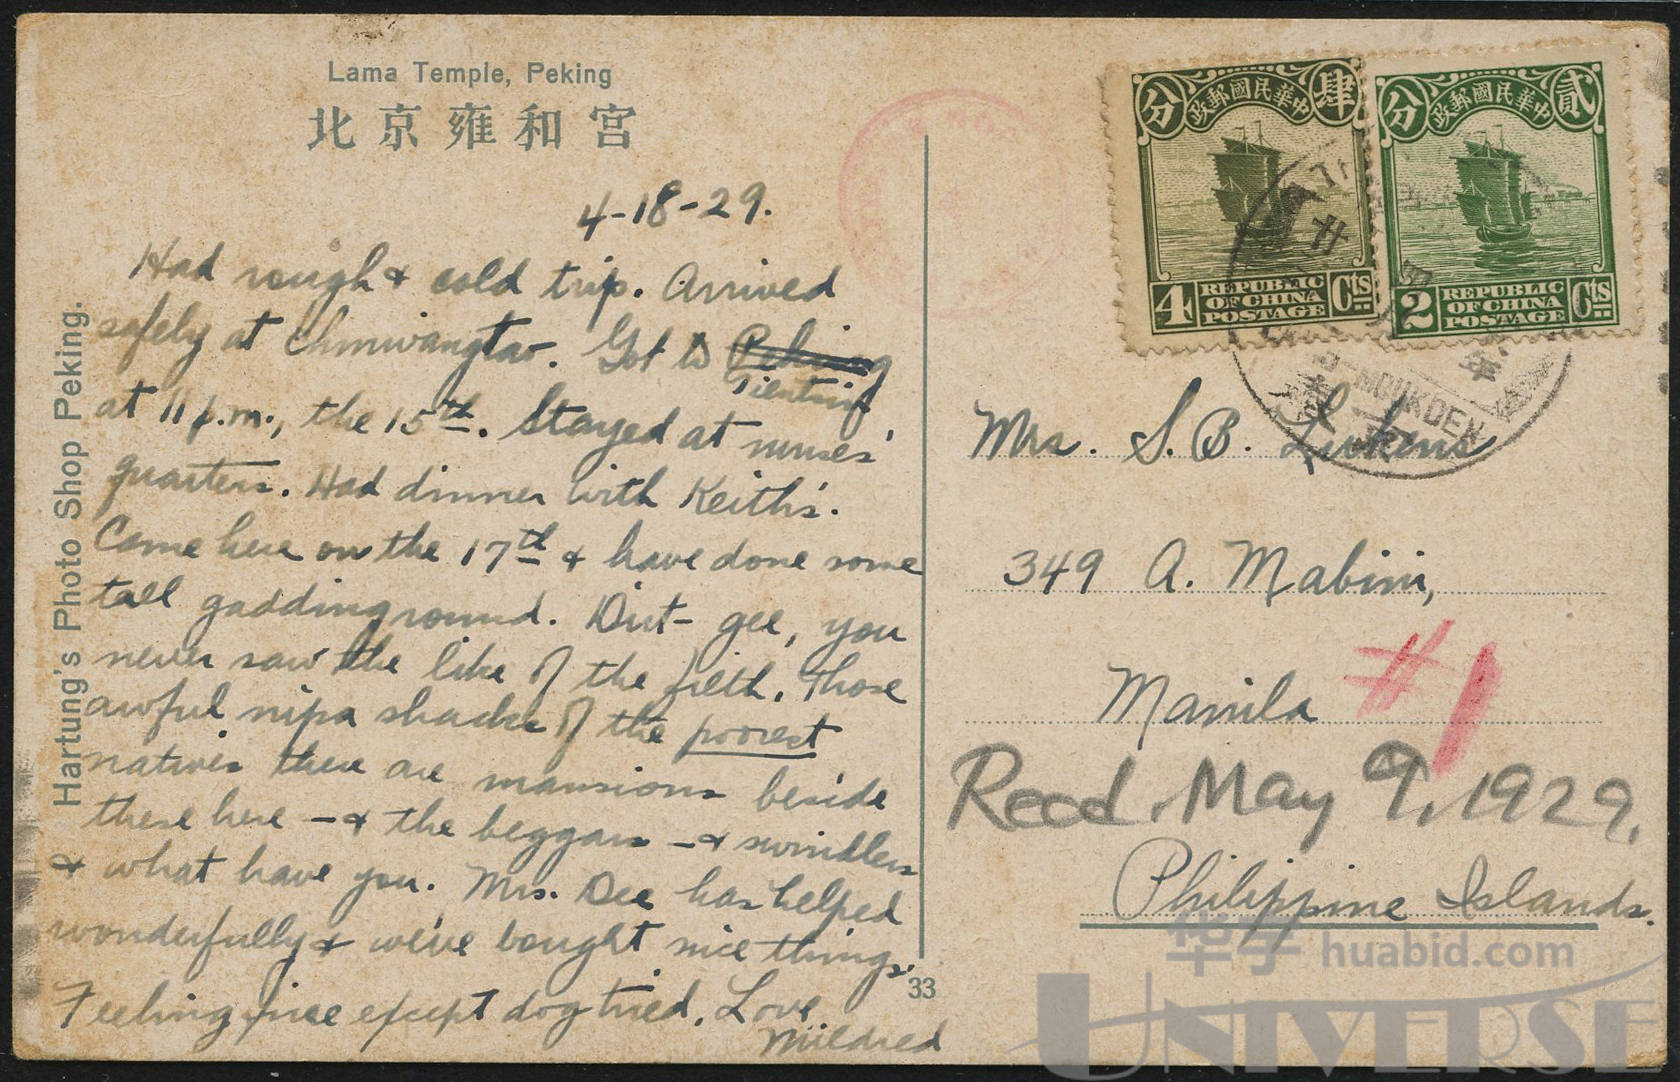 Lama Temple, Peking
北京雍和宮
4-18-29.
Had rough & cold trip. Arrived
safely at Chinwangtao. Got to Peking
Tientsin
at 11 p.m., the 15th. Stayed at nurses'
quarters. Had dinner with Keith's.
Came here on the 17th & have done some
tall gadding round. Dirt - gee, you
never saw the like of the filth. Those
awful nipa shacks of the poorest
natives there are mansions beside
these here - & the beggars - & swindlers
& what have you. Mrs. Dee has helped
wonderfully & we've bought nice things.
Feeling fine except dog tired. Love
Mildred
Hartung's Photo Shop Peking.
33
中華民國郵政
肆分
4 REPUBLIC OF CHINA POSTAGE Cts
中華民國郵政
貳分
2 REPUBLIC OF CHINA POSTAGE Cts
MOUKDEN
年
Mrs. S. B. Lukens
349 A. Mabini,
Manila #1
Recd. May 9, 1929.
Philippine Islands.
华宇 huabid.com
UNIVERSE